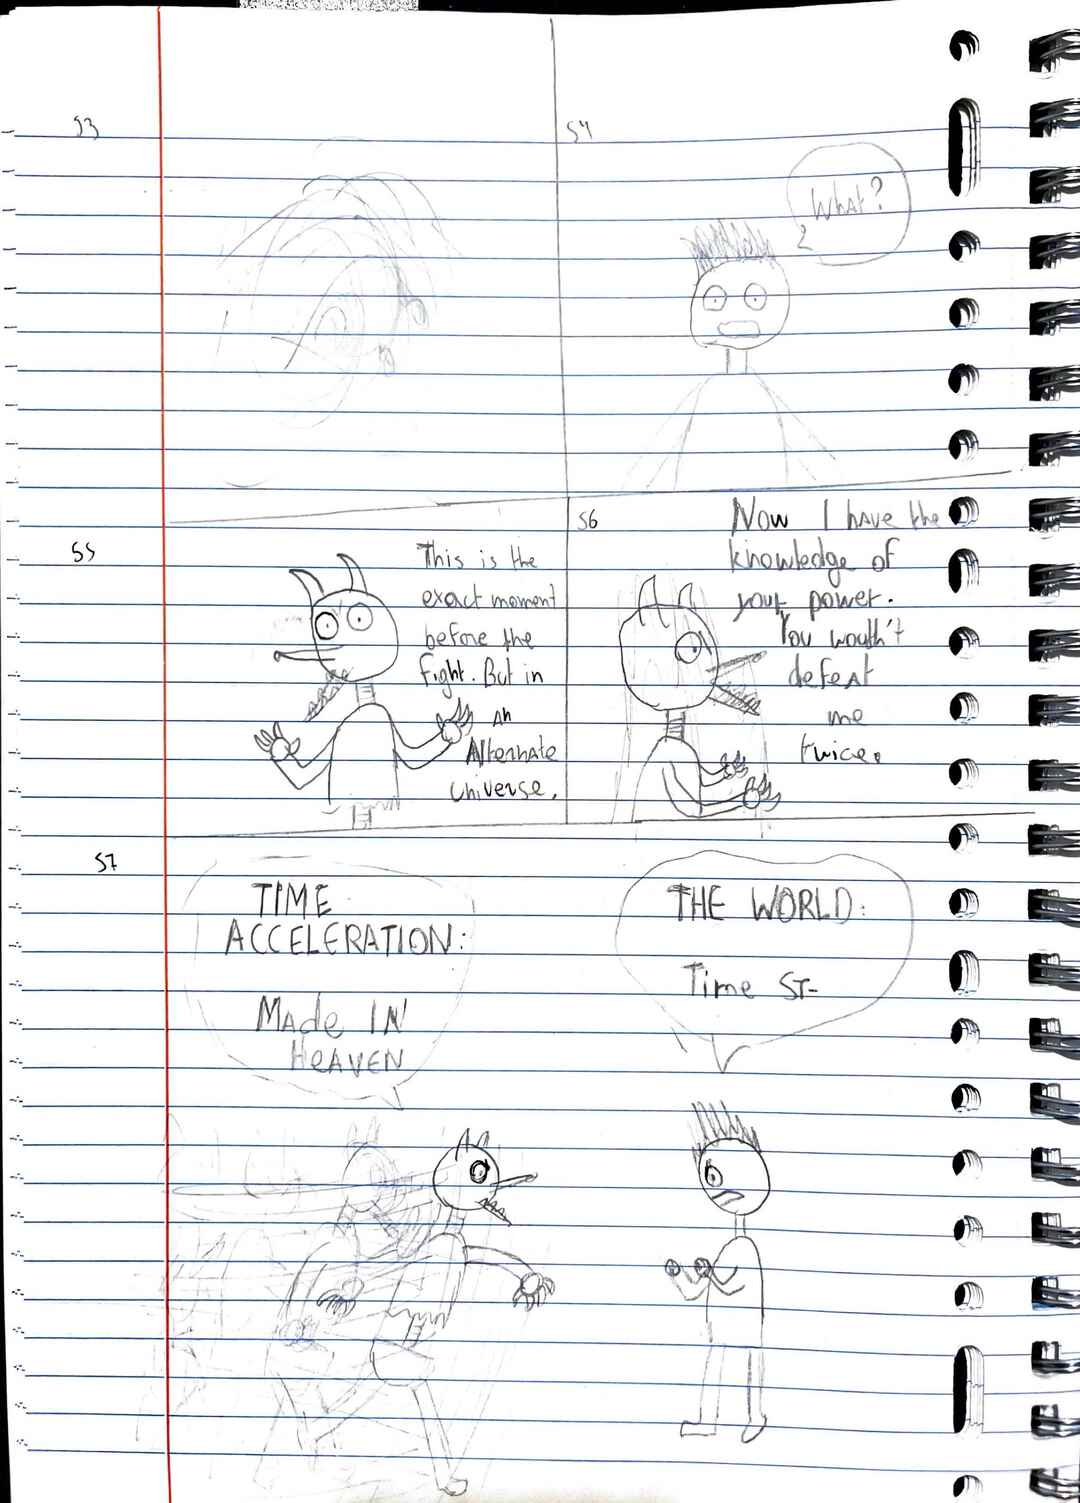 53
54
What?
55
This is the
exact moment
before the
fight. But in
an
Alternate
universe.
56
Now I have the
knowledge of
your power.
You wouldn't
defeat
me
twice.
57
TIME
ACCELERATION:
Made IN
HEAVEN
THE WORLD:
Time ST-